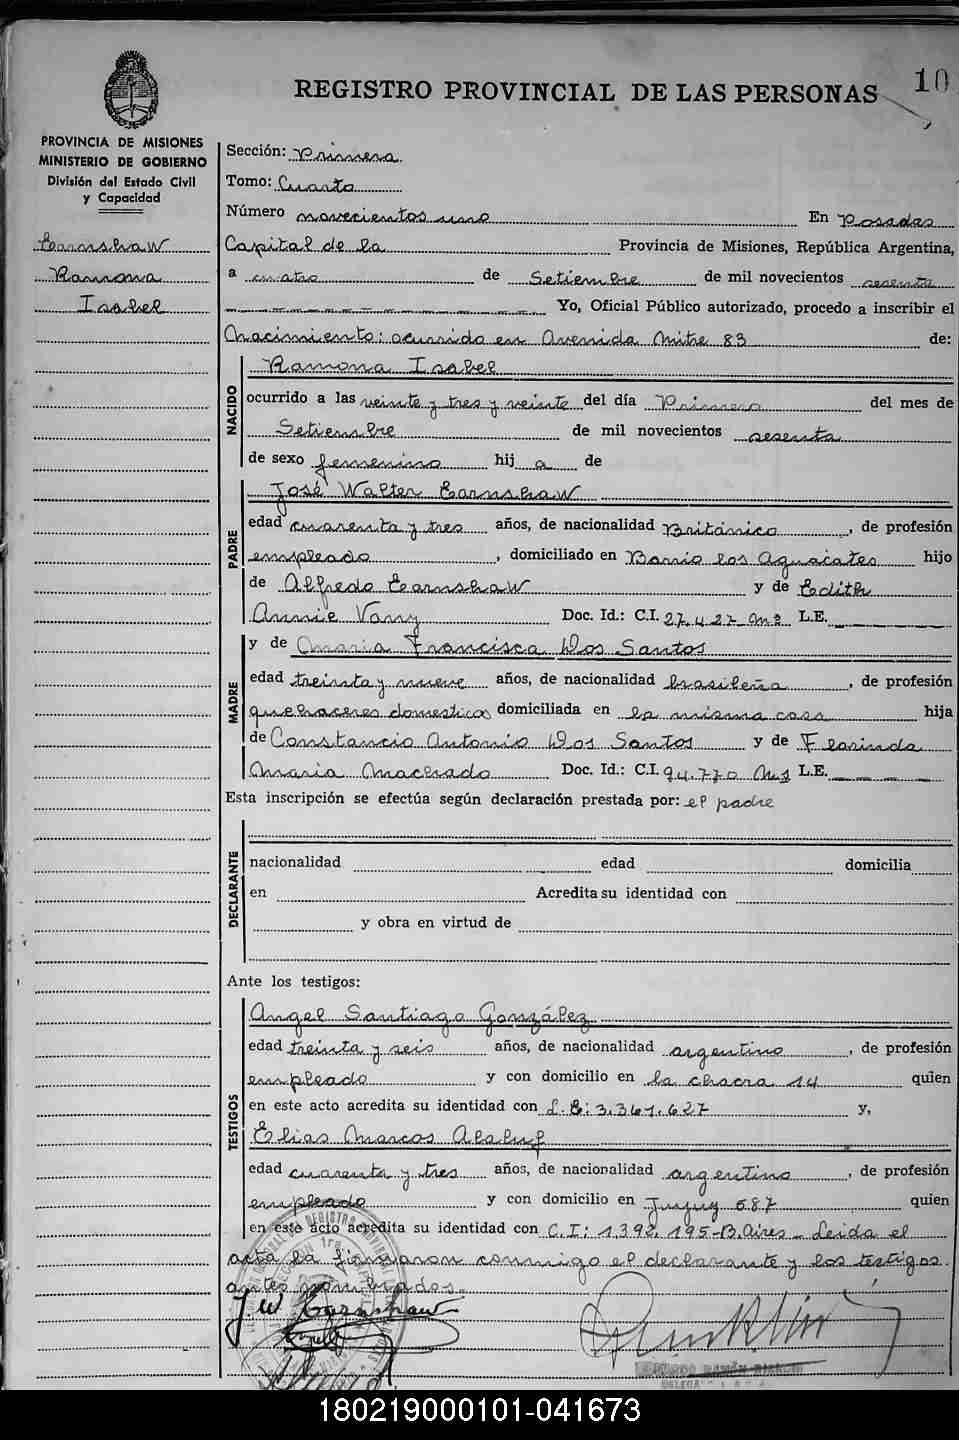 10
REGISTRO PROVINCIAL DE LAS PERSONAS
PROVINCIA DE MISIONES
MINISTERIO DE GOBIERNO
División del Estado Civil
y Capacidad
Earnshaw
Ramona
Isabel
Sección: Primera
Tomo: Cuarto
Número novecientos uno En Posadas
Capital de la Provincia de Misiones, República Argentina,
a cuatro de Setiembre de mil novecientos sesenta
Yo, Oficial Público autorizado, procedo a inscribir el
Nacimiento: ocurrido en Avenida Mitre 83 de:
Ramona Isabel
NACIDO
ocurrido a las veinte y tres y veinte del día Primero del mes de
Setiembre de mil novecientos sesenta
de sexo femenino hij a de
José Walter Earnshaw
PADRE
edad cuarenta y tres años, de nacionalidad Británico, de profesión
empleado, domiciliado en Barrio los Aguacates hijo
de Alfredo Earnshaw y de Edith
Annie Vany Doc. Id.: C.I. 27.427 L.E.
y de Maria Francisca Dos Santos
MADRE
edad treinta y nueve años, de nacionalidad brasileña, de profesión
quehaceres domesticos domiciliada en la misma casa hija
de Constancio Antonio Dos Santos y de Florinda
Maria Machado Doc. Id.: C.I. 94.770 L.E.
Esta inscripción se efectúa según declaración prestada por: el padre
DECLARANTE
nacionalidad edad domicilia
en Acredita su identidad con
y obra en virtud de
Ante los testigos:
Angel Santiago González
TESTIGOS
edad treinta y seis años, de nacionalidad argentino, de profesión
empleado y con domicilio en la chacra 14 quien
en este acto acredita su identidad con L.E: 3.361.627 y,
Elias Marcos Alaluf
edad cuarenta y tres años, de nacionalidad argentino, de profesión
empleado y con domicilio en Jujuy 687 quien
en este acto acredita su identidad con C.I: 1.392.195-B.Aires - Leida el
acta la firmaron conmigo el declarante y los testigos
antes nombrados.
J. W. Earnshaw
180219000101-041673